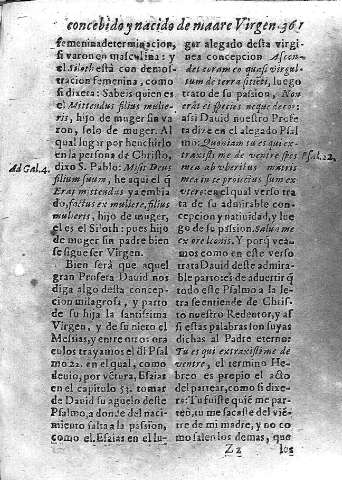 concebido y nacido de madre Virgen. 361
femenina determinacion,
si varon en masculina: y
el Siloth está con demos-
tracion femenina, como
si dixera: Sabeis quien es
el Mittendus filius mulie-
ris, hijo de muger sin va
ron, solo de muger. Al
qual lugar por henchirlo
en la persona de Christo,
dixo S. Pablo: Misit Deus
filium suum, he aqui el q̃
Erat mittendus ya embia
do, factus ex muliere, filius
mulieris, hijo de muger,
el es el Siloth: pues hijo
de muger sin padre bien
se sigue ser Virgen.
Bien será que aquel
gran Profeta David nos
diga algo desta concep-
cion milagrosa, y parto
de su hija la santissima
Virgen, y de su nieto el
Messias, y entre otros ora
culos trayamos el dl Psal
mo 22. en el qual, como
deuio, por vētura, Esaias
en el capitulo 53. tomar
de David su aguelo deste
Psalmo, a donde del naci-
miento salta a la passion,
como el. Esaias en el lu-
Ad Gal. 4.
gar alegado desta virgi
nea concepcion Ascen-
det coram eo quasi virgul-
tum de terra sitiēti, luego
trato de su passion, Non
erat ei species neque decor:
assi David nuestro Profe
ta dize en el alegado Psal
mo: Quoniam tu es qui ex-
traxisti me de ventre spes
mea ab vberibus matris
meæ in te proiectus sum ex
vtero: en el qual verso tra
ta de su admirable con-
cepcion y natiuidad, y lue
go de su passion. Salua me
ex ore leonis. Y porq̃ vea-
mos como en este verso
trata David deste admira-
ble parto es de aduertir q̃
todo este Psalmo a la le-
tra se entiende de Chris-
to nuestro Redentor, y as
si estas palabras son suyas
dichas al Padre eterno:
Tu es qui extraxisti me de
ventre, el termino He-
breo es propio el acto
del partear, como si dixe-
ra: Tu fuiste quiē me par-
teó, tu me sacaste del viē-
tre de mi madre, y no co-
mo salen los demas, que
Psal. 22.
Zz los